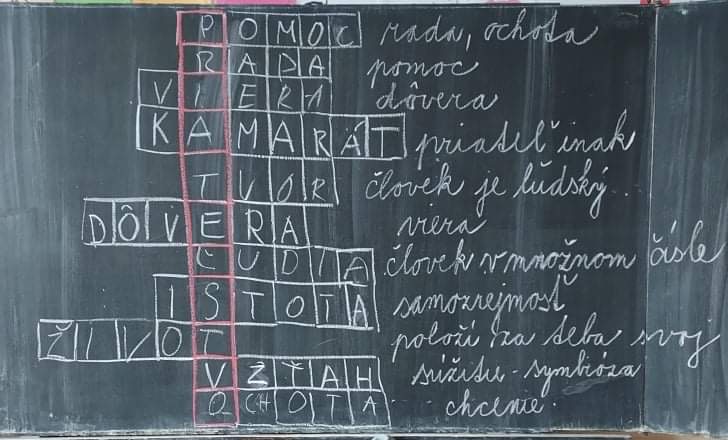 POMOC rada, ochota
RADA pomoc
VIERA dôvera
KAMARÁT priateľ inak
TVOR človek je ľudský..
DÔVERA viera
ĽUDIA človek v množnom čísle
ISTOTA samozrejmosť
ŽIVOT položí za teba svoj
VZŤAH súžitie - symbióza
OCHOTA chcenie.